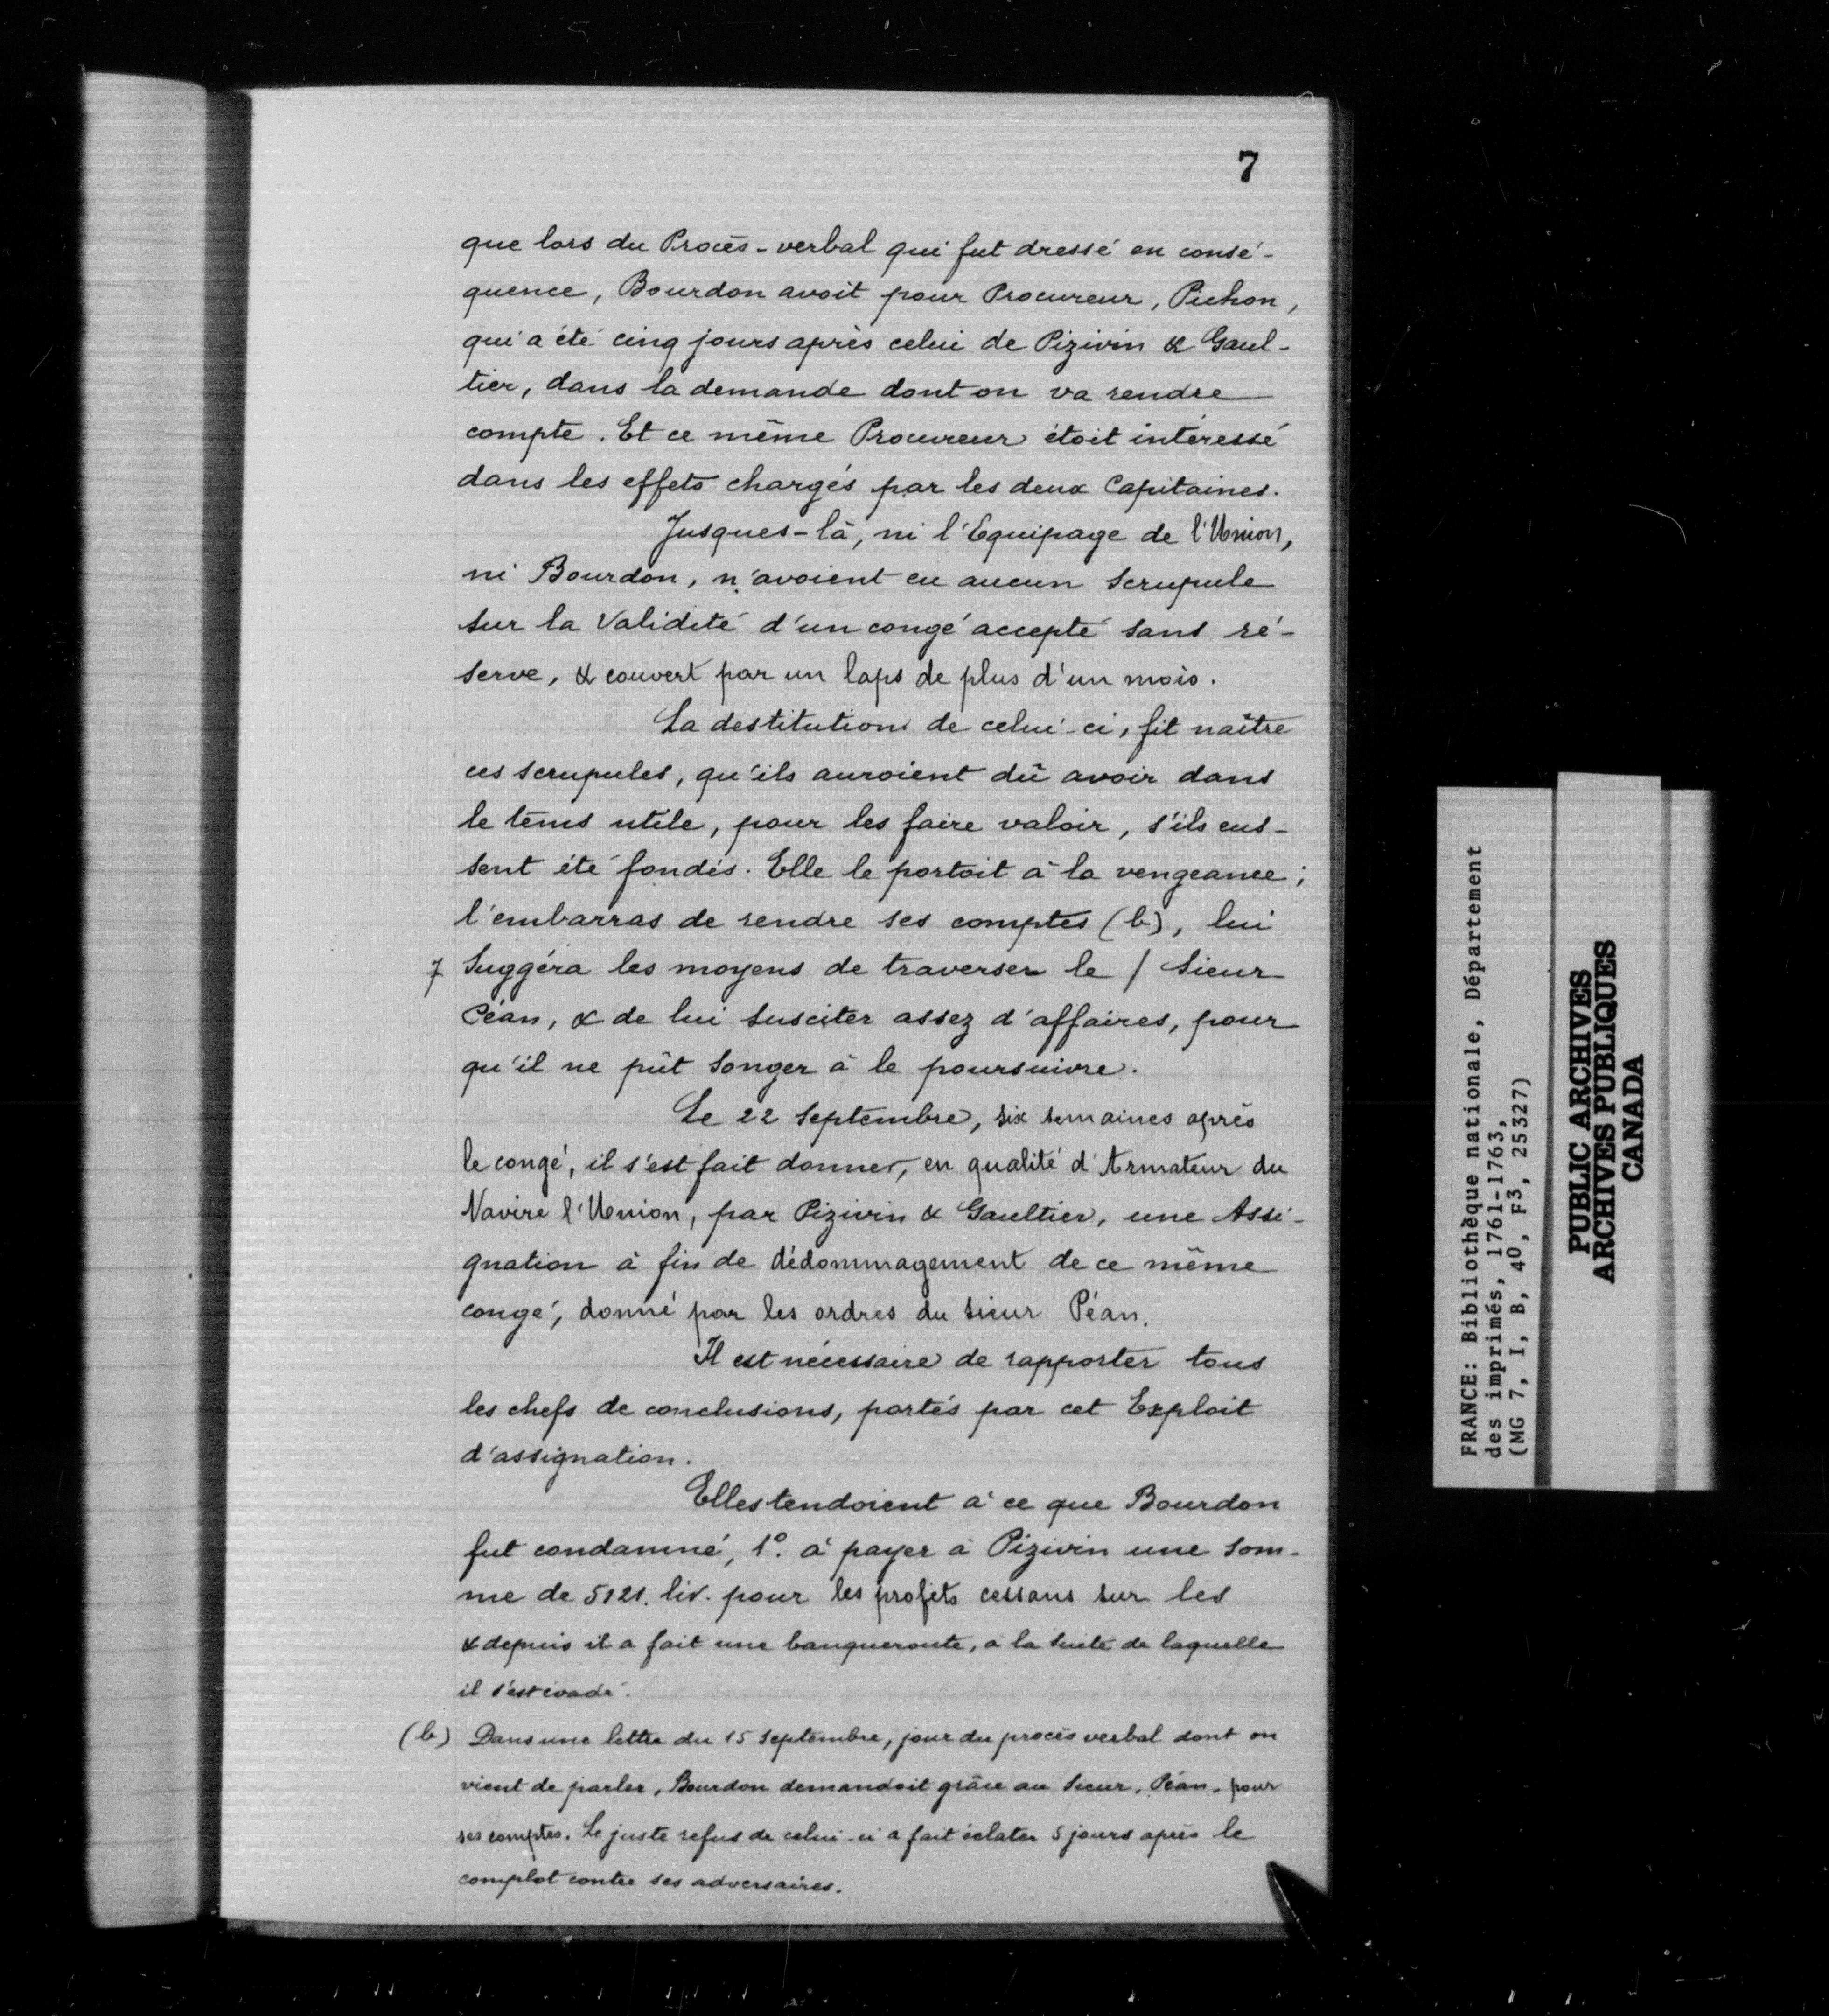 7
que lors du Procès-verbal qui fut dressé en consé-
quence, Bourdon avoit pour Procureur, Pichon,
qui a été cinq jours après celui de Pizivin & Gaul-
tier, dans la demande dont on va rendre
compte. Et ce même Procureur étoit intéressé
dans les effets chargés par les deux Capitaines.
Jusques-là, ni l'Equipage de l'Union,
ni Bourdon, n'avoient eu aucun scrupule
sur la Validité d'un congé accepté sans ré-
serve, & couvert par un laps de plus d'un mois.
La destitution de celui-ci, fit naître
ces scrupules, qu'ils auroient dû avoir dans
le tems utile, pour les faire valoir, s'ils eus-
sent été fondés. Elle le portoit à la vengeance;
l'embarras de rendre ses comptes (b), lui
7 Suggéra les moyens de traverser le / Sieur
Péan, & de lui susciter assez d'affaires, pour
qu'il ne pût songer à le poursuivre.
Le 22 Septembre, six semaines après
le congé, il s'est fait donner, en qualité d'Armateur du
Navire l'Union, par Pizivin & Gaultier, une Assi-
gnation à fin de dédommagement de ce même
congé, donné par les ordres du Sieur Péan.
Il est nécessaire de rapporter tous
les chefs de conclusions, portés par cet Exploit
d'assignation.
Elles tendoient à ce que Bourdon
fut condamné, 1º. à payer à Pizivin une som-
me de 5121. liv. pour les profits cessans sur les
& depuis il a fait une banqueroute, à la suite de laquelle
il s'est évadé.
(b) Dans une lettre du 15 Septembre, jour du procès verbal dont on
vient de parler, Bourdon demandoit grâce au Sieur, Péan, pour
ses comptes. Le juste refus de celui-ci a fait éclater 5 jours après le
complot contre ses adversaires.
FRANCE: Bibliothèque nationale, Département
des imprimés, 1761-1763,
(MG 7, I, B, 40, F3, 25327)
PUBLIC ARCHIVES
ARCHIVES PUBLIQUES
CANADA